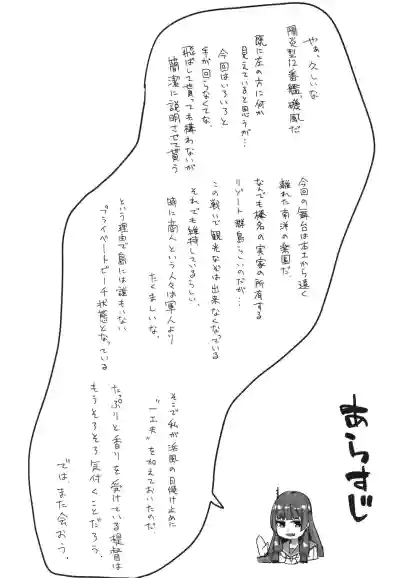 あらすじ
やぁ、久しいな
陽炎型12番艦、磯風だ
既に左の方に何か
見えていると思うが…
今回はいろいろと
手が回らなくてな、
飛ばして貰っても構わないが
簡潔に説明させて貰う
今回の舞台は本土から遠く
離れた南洋の楽園だ。
なんでも榛名の実家の所有する
リゾート群島らしいのだが…
この戦いで観光などは出来なくなっている
それでも維持しているらしい。
時に商人という人々は軍人より
たくましいな。
という理由で島には誰もいない
プライベートビーチ状態となっている
そこで私が浜風の日焼け止めに
"一工夫"を加えておいたのだ。
たっぷりと香りを受けている提督は
もうそろそろ気付くことだろう。
では、また会おう。